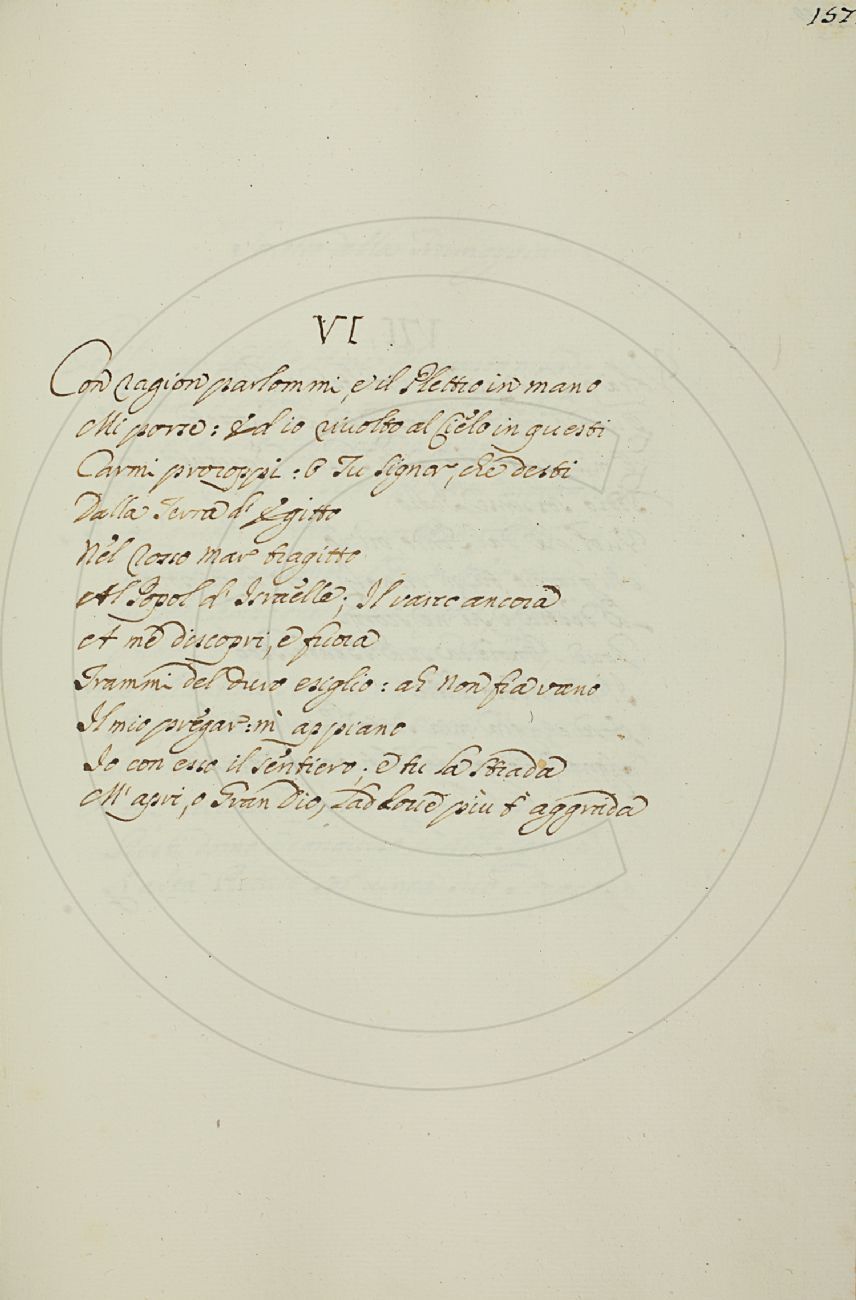 157
VI
Con ragion parlommi, e il Plettro in mano
Mi porse: Ed io rivolto al Cielo in questi
Carmi proroppi: O Tu Signor, che desti
Dalla Terra d' Egitto
Nel rosso mar tragitto
Al Popol d' Israelle; Il varco ancora
A me discopri, e fuora
Trammi del duro esiglio: ah non fia vano
Il mio pregar: mi appiano
Io con esso il sentiero; e tu la strada
M' apri, o Gran Dio, Laddove più t' aggrada